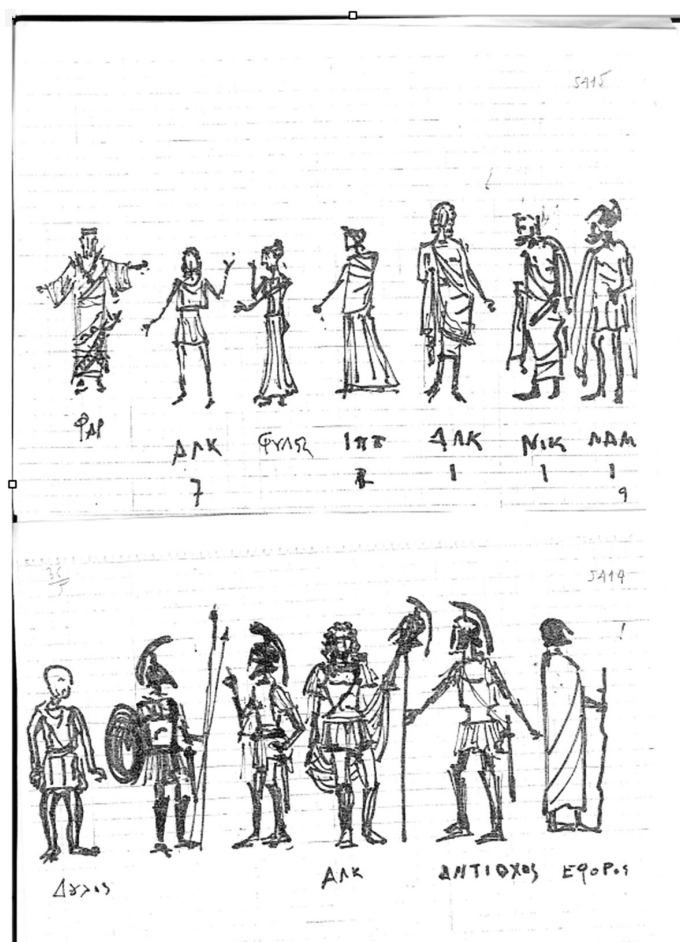 5415
ΦΑΡ ΑΛΚ ΦΥΛΑΞ ΙΠΠ ΑΛΚ ΝΙΚ ΛΑΜ
7 1 1 1 1
9
35/5 5414
Δούλος ΑΛΚ ΑΝΤΙΟΧΟΣ ΕΦΟΡΟΣ